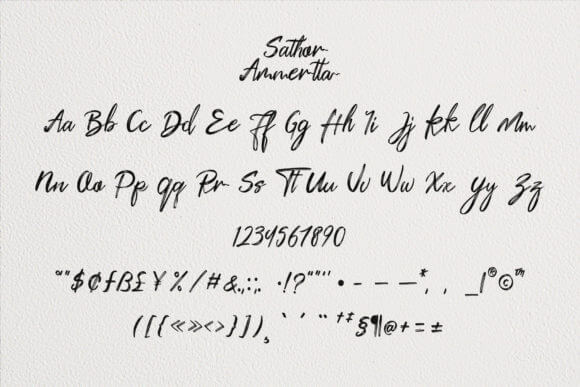 Sathor
Ammertta
Aa Bb Cc Dd Ee Ff Gg Hh Ii Jj Kk Ll Mm
Nn Oo Pp Qq Rr Ss Tt Uu Vv Ww Xx Yy Zz
1234567890
“”$¢ƒß£¥%/#&.,:;. ·!?"'“” • - – —*, , _|®©™
([{«»‹›}])¸ ` ´ ¨ †‡§¶@+=±